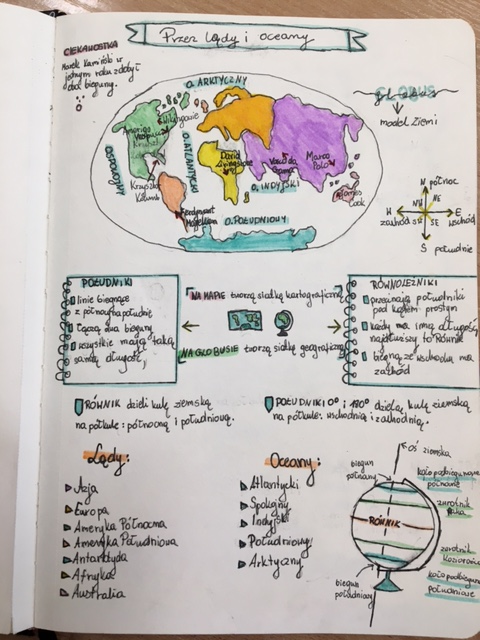 Przez lądy i oceany
CIEKAWOSTKA
Marek Kamiński w
jednym roku zdobył
dwa bieguny.
O. ARKTYCZNY
Wikingowie
Amerigo
Vespucci
Krzysztof
Kolumb
O. ATLANTYCKI
O. SPOKOJNY
David
Livingstone
Vasco da
Gama
Marco
Polo
O. INDYJSKI
James
Cook
Ferdynand
Magellan
O. POŁUDNIOWY
GLOBUS
model ziemi
N północ
NW
NE
W
zachód
E
wschód
SW
SE
S południe
POŁUDNIKI
linie biegnące
z północy na południe
łączą dwa bieguny
wszystkie mają taką
samą długość,
NA MAPIE tworzą siatkę kartograficzną
NA GLOBUSIE tworzą siatkę geograficzną
RÓWNOLEŻNIKI
przecinają południki
pod kątem prostym
każdy ma inną długość,
najdłuższy to Równik
biegną ze wschodu na
zachód
RÓWNIK dzieli kulę ziemską
na półkule: północną i południową.
POŁUDNIK 0° i 180° dzielą kulę ziemską
na półkule: wschodnią i zachodnią.
Lądy:
Azja
Europa
Ameryka Północna
Ameryka Południowa
Antarktyda
Afryka
Australia
Oceany:
Atlantycki
Spokojny
Indyjski
Południowy
Arktyczny
oś ziemska
biegun
północny
koło podbiegunowe
północne
zwrotnik
Raka
RÓWNIK
zwrotnik
Koziorożca
koło podbiegunowe
południowe
biegun
południowy